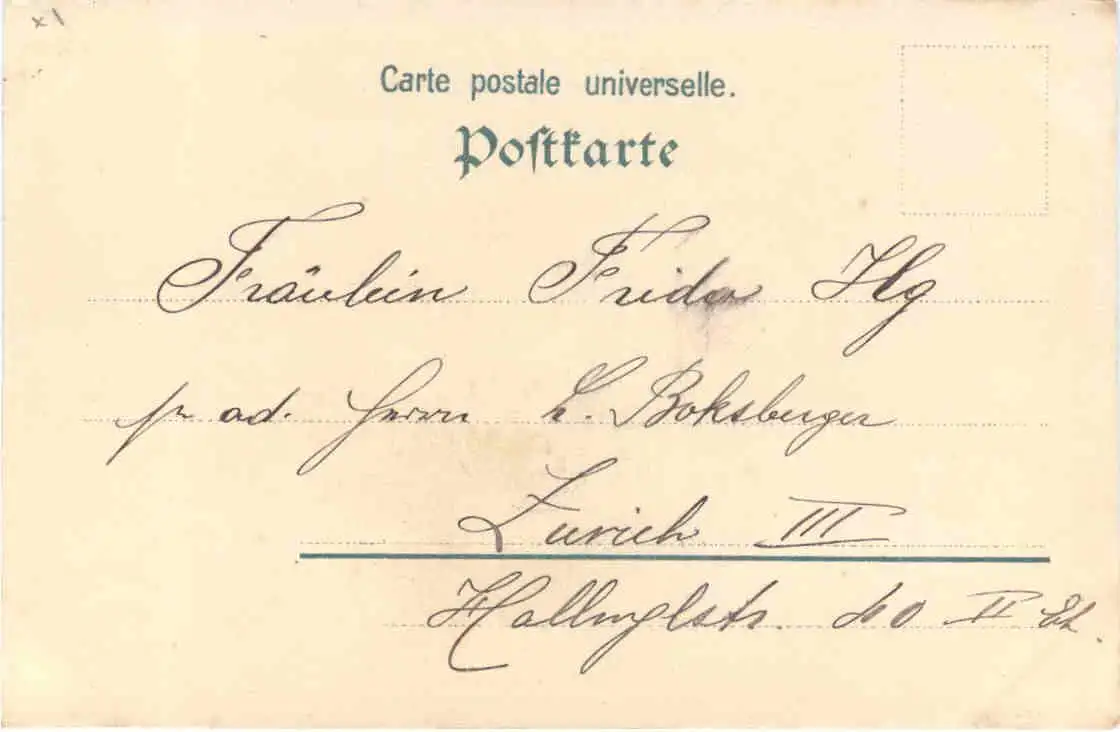 x1
Carte postale universelle.
Postkarte
Fräulein Frida Ilg
pr ad. Herrn L. Boksberger
Zürich III
II Et.